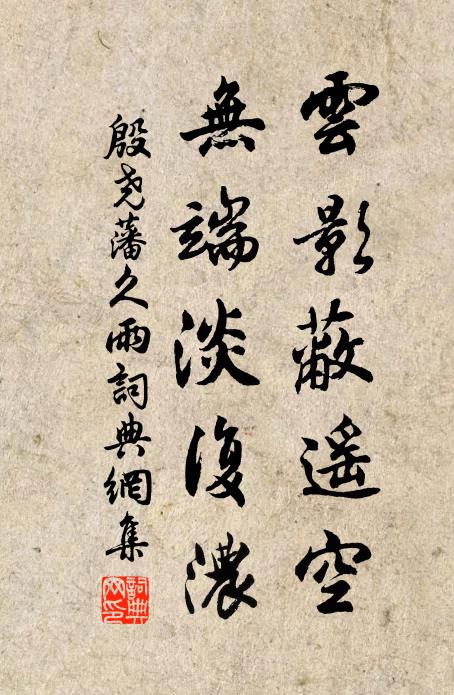 雲影蔽遥空
無端淡復濃
殷尧藩久雨詞典網集
詞典
网印